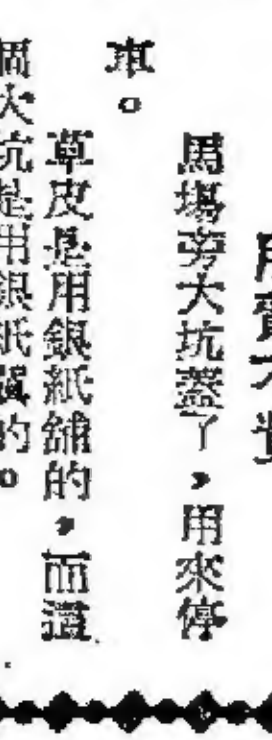 所費不貲
馬場旁大坑蓋了，用來停
車。
草皮是用銀紙舖的，而這
個大坑是用銀紙填的。